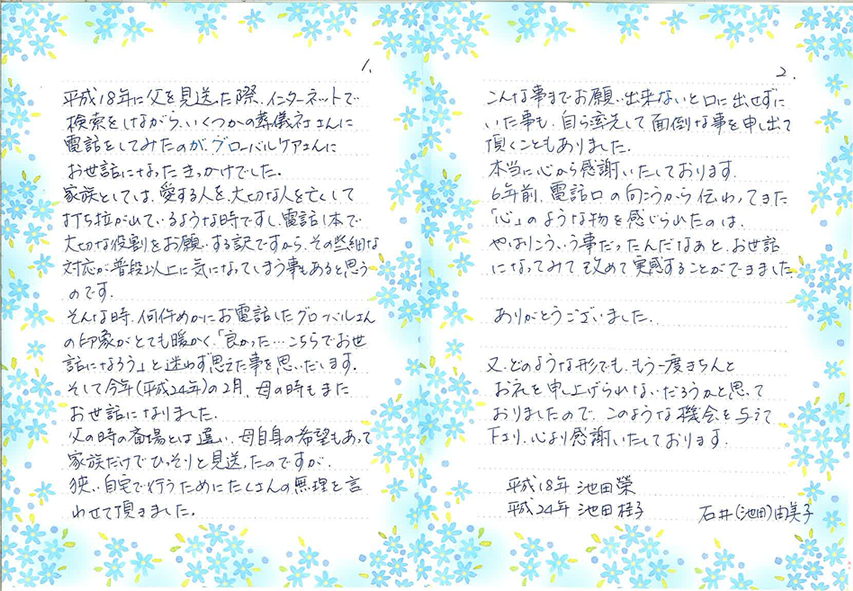 1.
平成18年に父を見送った際、インターネットで
検索をしながら、いくつかの葬儀社さんに
電話をしてみたのが、グローバルケアさんに
お世話になったきっかけでした。
家族としては、愛する人を、大切な人を亡くして
打ち拉がれているような時ですし、電話1本で
大切な役割をお願いする訳ですから、その些細な
対応が普段以上に気になってしまう事もあると思う
のです。
そんな時、何件めかにお電話したグローバルさん
の印象がとても暖かく、「良かった…こちらでお世
話になろう」と迷わず思えた事を思いだします。
そして今年(平成24年)の2月、母の時もまた
お世話になりました。
父の時の斎場とは違い、母自身の希望もあって
家族だけでひっそりと見送ったのですが、
狭い自宅で行うためにたくさんの無理を言
わせて頂きました。
2.
こんな事までお願い出来ないと口に出せずに
いた事も、自ら率先して面倒な事を申し出て
頂くこともありました。
本当に心から感謝いたしております。
6年前、電話口の向こうから伝わってきた
「心」のような物を感じられたのは、
やはりこういう事だったんだなあと、お世話
になってみて改めて実感することができました。
ありがとうございました。
又、どのような形でも、もう一度きちんと
お礼を申し上げられないだろうかと思って
おりましたので、このような機会を与えて
下さり、心より感謝いたしております。
平成18年 池田榮
平成24年 池田桂子
石井(池田)由美子